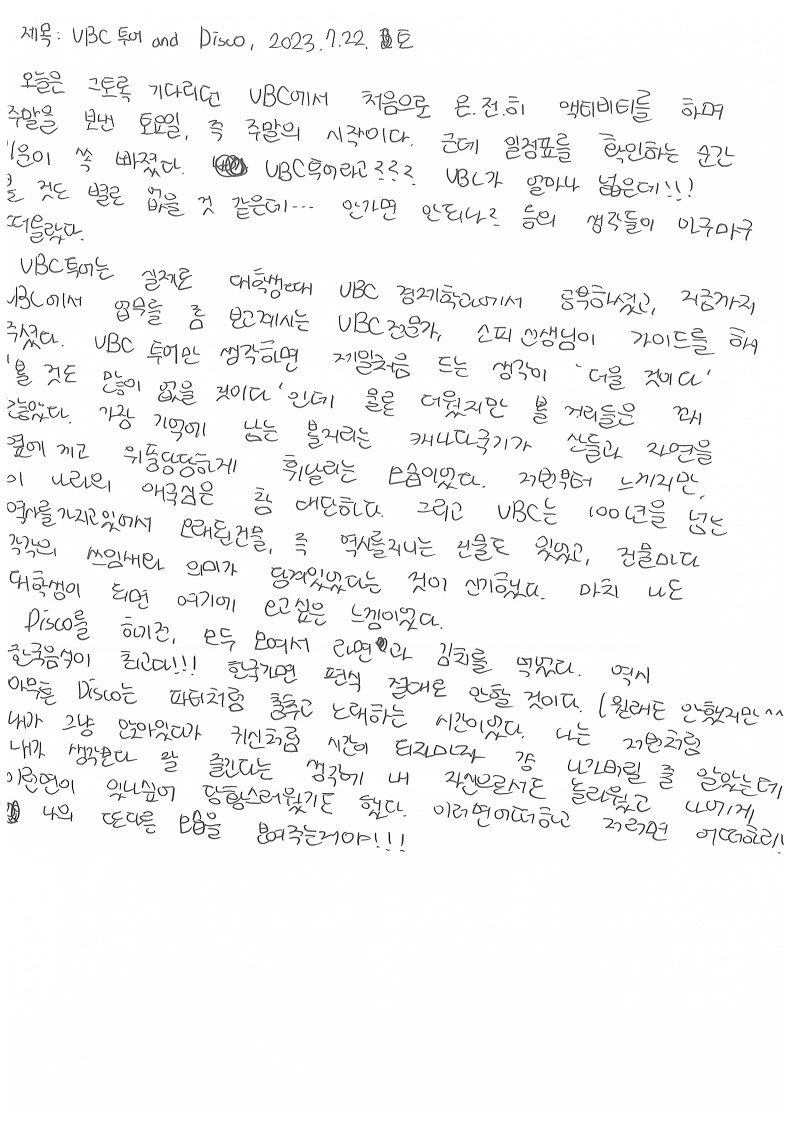 제목: UBC 투어 and Disco, 2023.7.22. 토
오늘은 그토록 기다리던 UBC에서 처음으로 온.전.히 액티비티를 하며
주말을 보낸 토요일, 즉 주말의 시작이다. 근데 일정표를 확인하는 순간
기운이 쏙 빠졌다. UBC투어라고??? UBC가 얼마나 넓은데!!!
볼 것도 별로 없을 것 같은데... 안가면 안되나? 등의 생각들이 마구마구
떠올랐다.
UBC투어는 실제로 대학생때 UBC 경제학과에서 공부하셨고, 지금까지
UBC에서 업무를 좀 보고계시는 UBC전문가, 소피 선생님이 가이드를 해
주셨다. UBC 투어만 생각하면 제일처음 드는 생각이 '더울 것이다'
'볼 것도 많이 없을 것이다'인데 물론 더웠지만 볼 거리들은 꽤
많았다. 가장 기억에 남는 볼거리는 캐나다국기가 산들과 자연을
옆에 끼고 위풍당당하게 휘날리는 모습이었다. 저번부터 느끼지만,
이 나라의 애국심은 참 대단하다. 그리고 UBC는 100년을 넘는
역사를 가지고있어서 오래된건물, 즉 역사를지니는 건물도 있었고, 건물마다
각각의 쓰임새와 의미가 담겨있었다는 것이 신기했다. 마치 나도
대학생이 되면 여기에 오고싶은 느낌이었다.
Disco를 하기전, 모두 모여서 라면과 김치를 먹었다. 역시
한국음식이 최고다!!! 한국가면 편식 절대로 안할 것이다. (원래도 안했지만^^
아무튼 Disco는 파티처럼 춤추고 노래하는 시간이었다. 나는 저번처럼
내가 그냥 앉아있다가 귀신처럼 시간이 되자마자 걍 나가버릴 줄 알았는데
내가 생각보다 잘 즐긴다는 생각에 내 자신으로서도 놀라웠고 나에게
이런면이 있나싶어 당황스러웠기도 했다. 이러면어떠하고 저러면 어떠하리!
나의 또다른 모습을 보여주는거야!!!